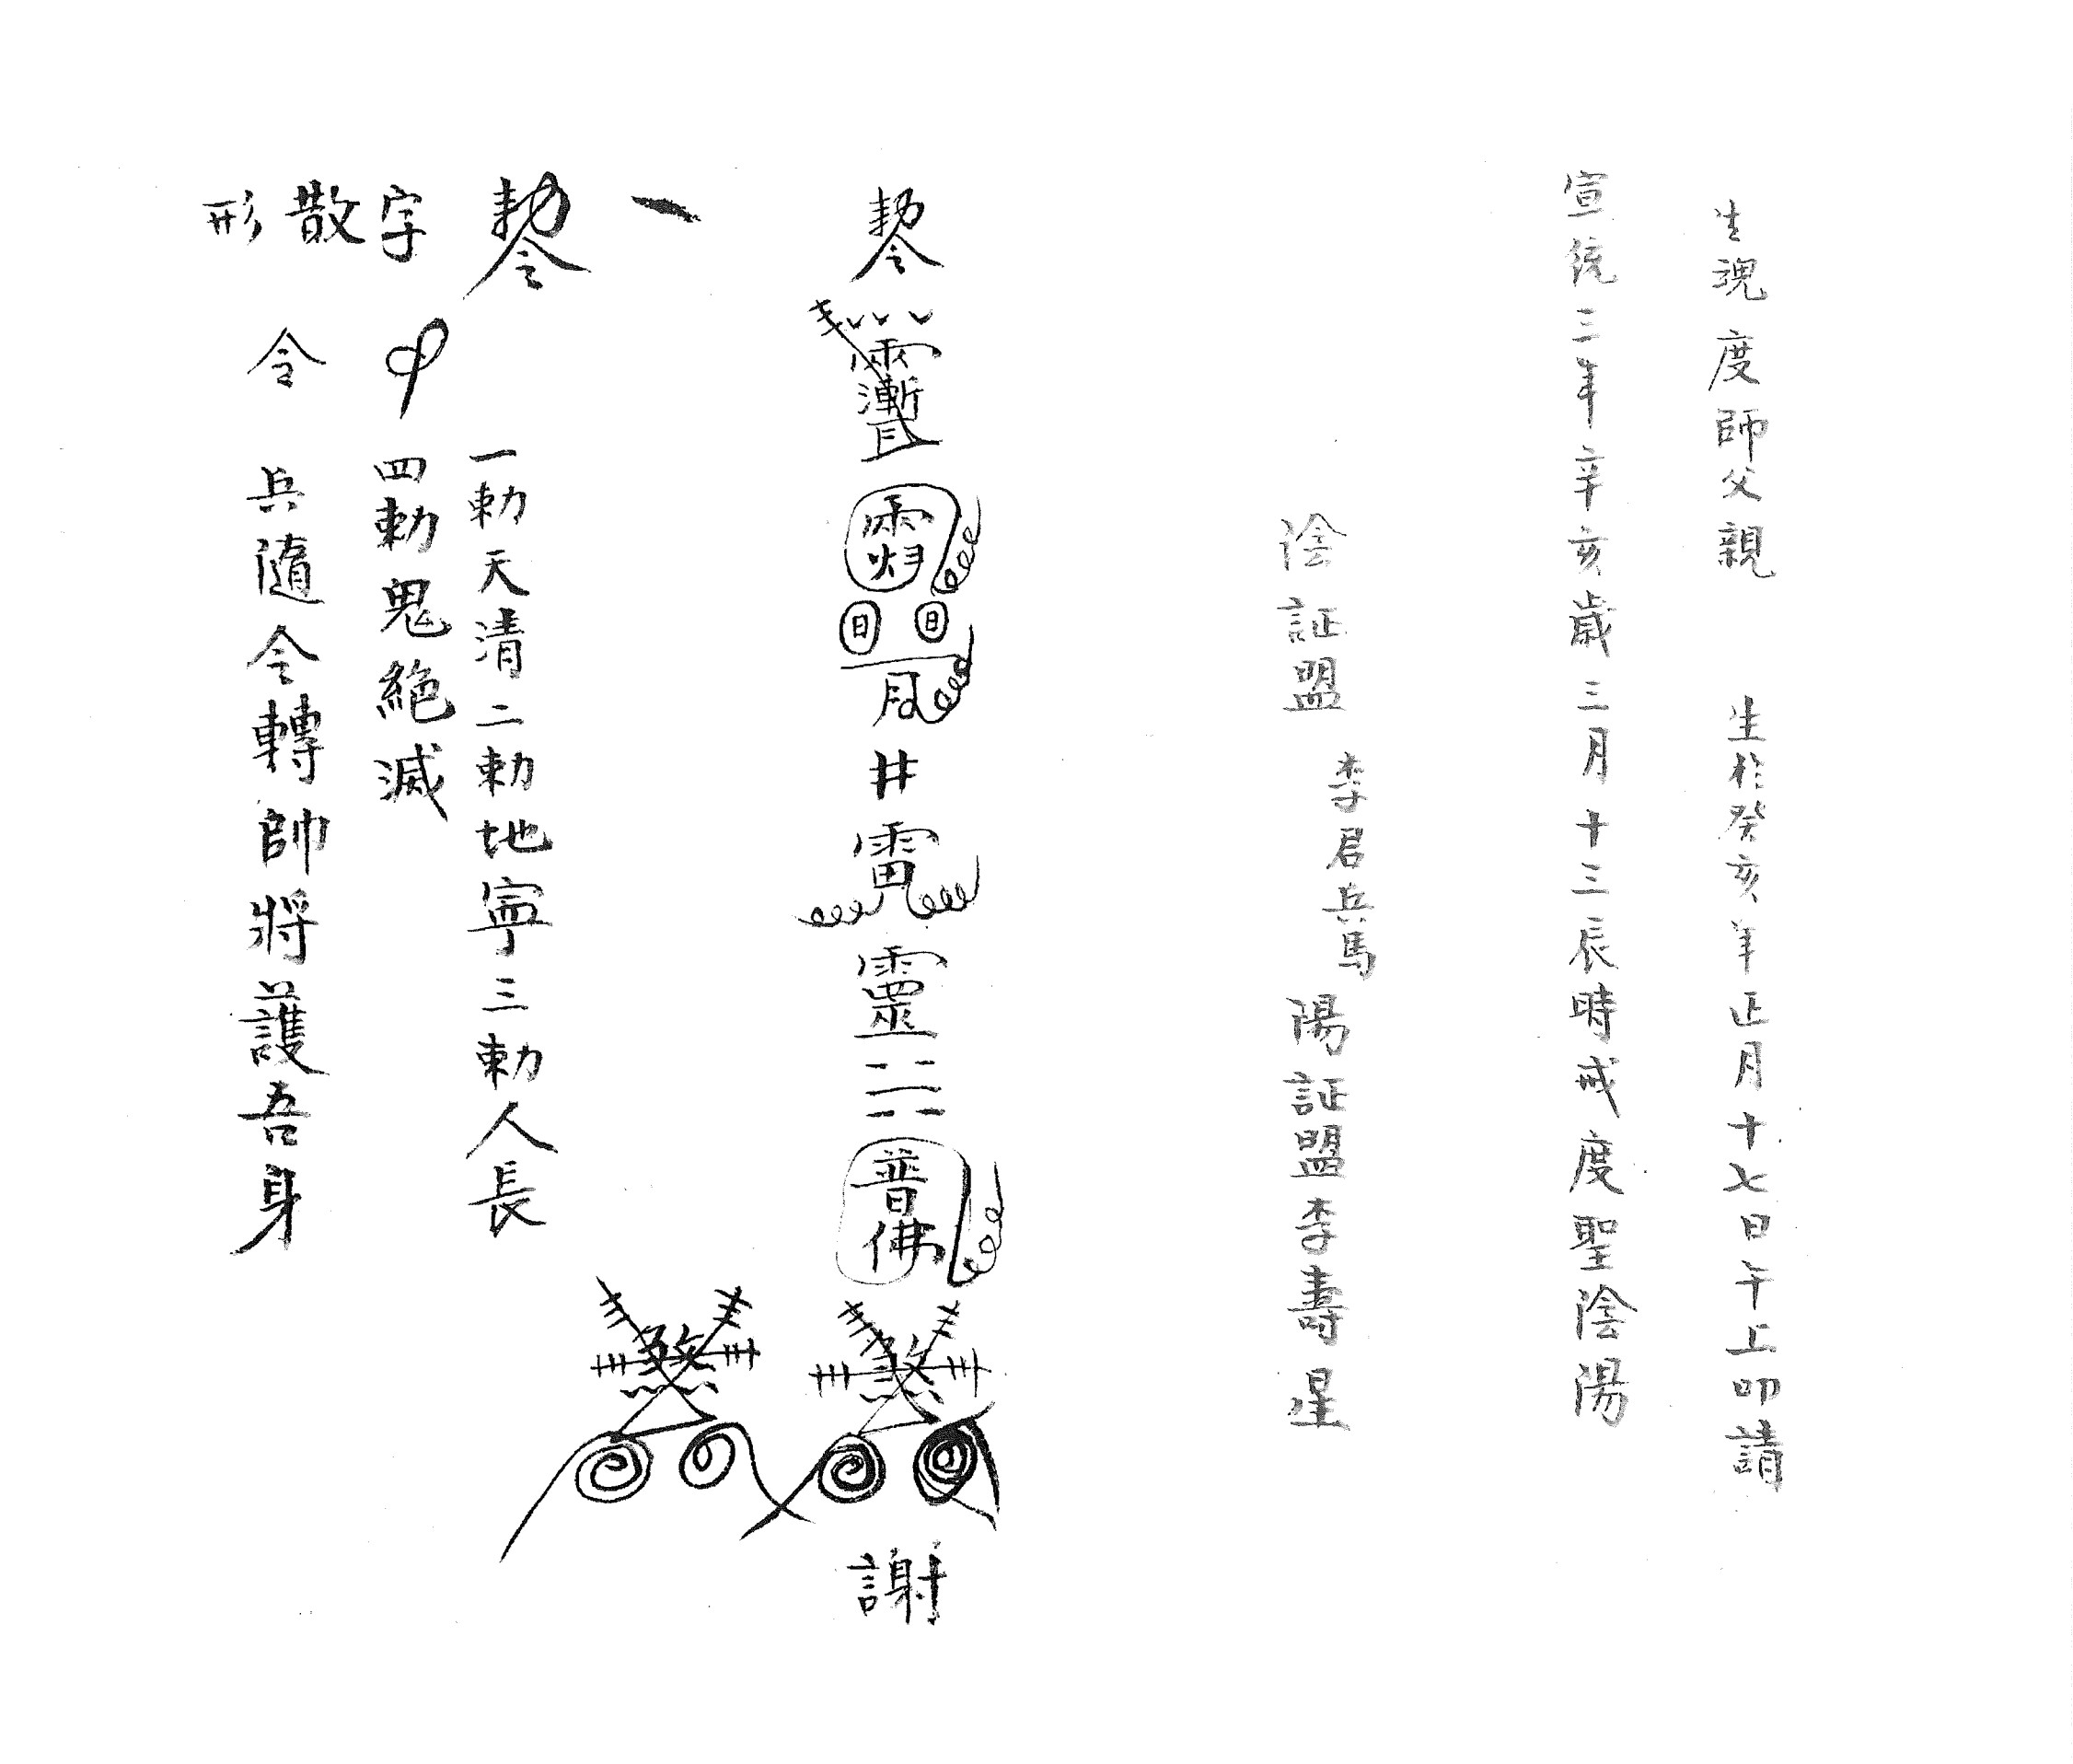 生魂度師父親 生於癸亥年正月十七日午上叩請
宣統三年辛亥歲三月十三辰時戒度聖陰陽
陰証盟 李君兵馬 陽証盟李壽星
勅令 井雷靈 普佛 煞 謝
一
勅令 一勅天清二勅地寧三勅人長
字 四勅鬼絕滅
散
形 令 兵隨令轉帥將護吾身
煞